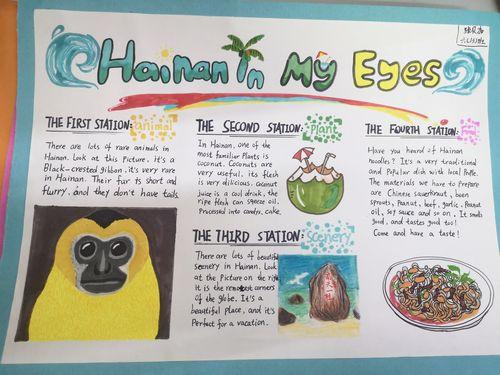 Hainan In My Eyes
THE FIRST STATION: animal
There are lots of rare animals in
Hainan. Look at this picture. it's a
Black-crested gibbon. it's very rare
in Hainan. Their fur is short and
flurry. and they don't have tails.
THE SECOND STATION: Plant
In Hainan, one of the
most familiar Plants is
coconut. Coconuts are
very useful. its flesh
is very dilicious. coconut
Juice is a cool drink, the
ripe flesh can sqeeze oil.
Processed into candy, cake.
THE THIRD STATION: Scenery
There are lots of beautiful
scenery in Hainan. Look
at the picture on the right
It is the remotest corners
of the globe. It's a
beautiful place, and it's
Perfect for a vacation.
THE FOURTH STATION:
Have you heard of Hainan
noodles? It's a very traditional
and Popular dish with local People.
The materials we have to prepare
are Chinese sauerkraut, bean
sprouts, Peanut, beef, garlic, Peanut
oil, soy sauce and so on. It smells
good, and tastes good too!
Come and have a taste!